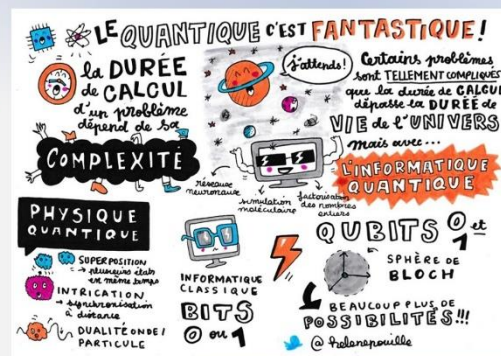 LE QUANTIQUE C'EST FANTASTIQUE!
la DURÉE
de CALCUL
d'un problème
dépend de sa
COMPLEXITÉ
j'attends!
Certains problèmes
sont TELLEMENT COMPLIQUÉS
que la durée de CALCUL
dépasse la DURÉE de
VIE de l'UNIVERS
mais avec...
L'INFORMATIQUE
QUANTIQUE
réseaux
neuronaux
simulation
moléculaire
factorisation
des nombres
entiers
PHYSIQUE
QUANTIQUE
SUPERPOSITION
→ plusieurs états
en même temps
INTRICATION
→ synchronisation
à distance
DUALITÉ ONDE/
PARTICULE
INFORMATIQUE
CLASSIQUE
BITS
0 ou 1
QUBITS 0 et 1
SPHÈRE DE
BLOCH
BEAUCOUP PLUS DE
POSSIBILITÉS!!!
@helenepouille